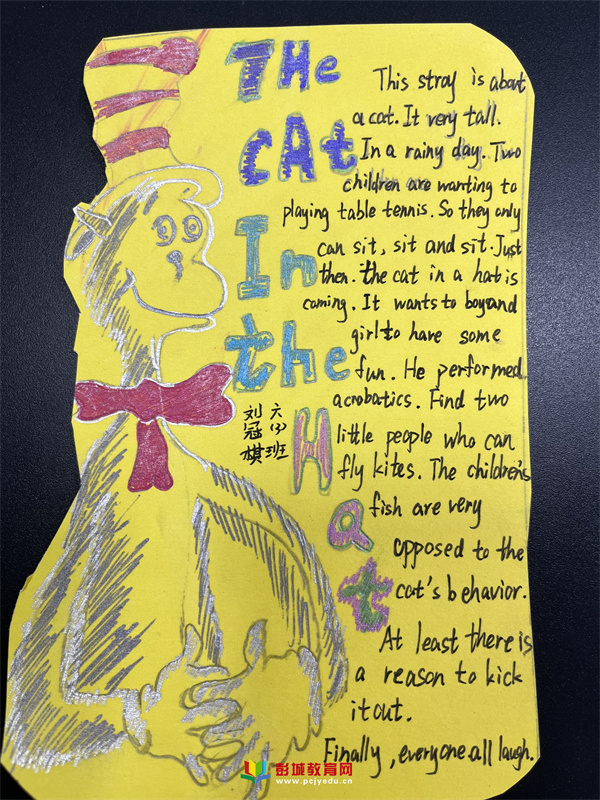 The
CAt
In
the
Hat
This stroy is about
a cat. It very tall.
In a rainy day. Two
children are wanting to
playing table tennis. So they only
can sit, sit and sit. Just
then. the cat in a hat is
coming. It wants to boy and
girl to have some
fun. He performed
acrobatics. Find two
little people who can
fly kites. The children's
fish are very
opposed to the
cat's behavior.
At least there is
a reason to kick
it out.
Finally, everyone all laugh.
六(3)班
刘冠棋
彭城教育网
www.pcjyedu.cn